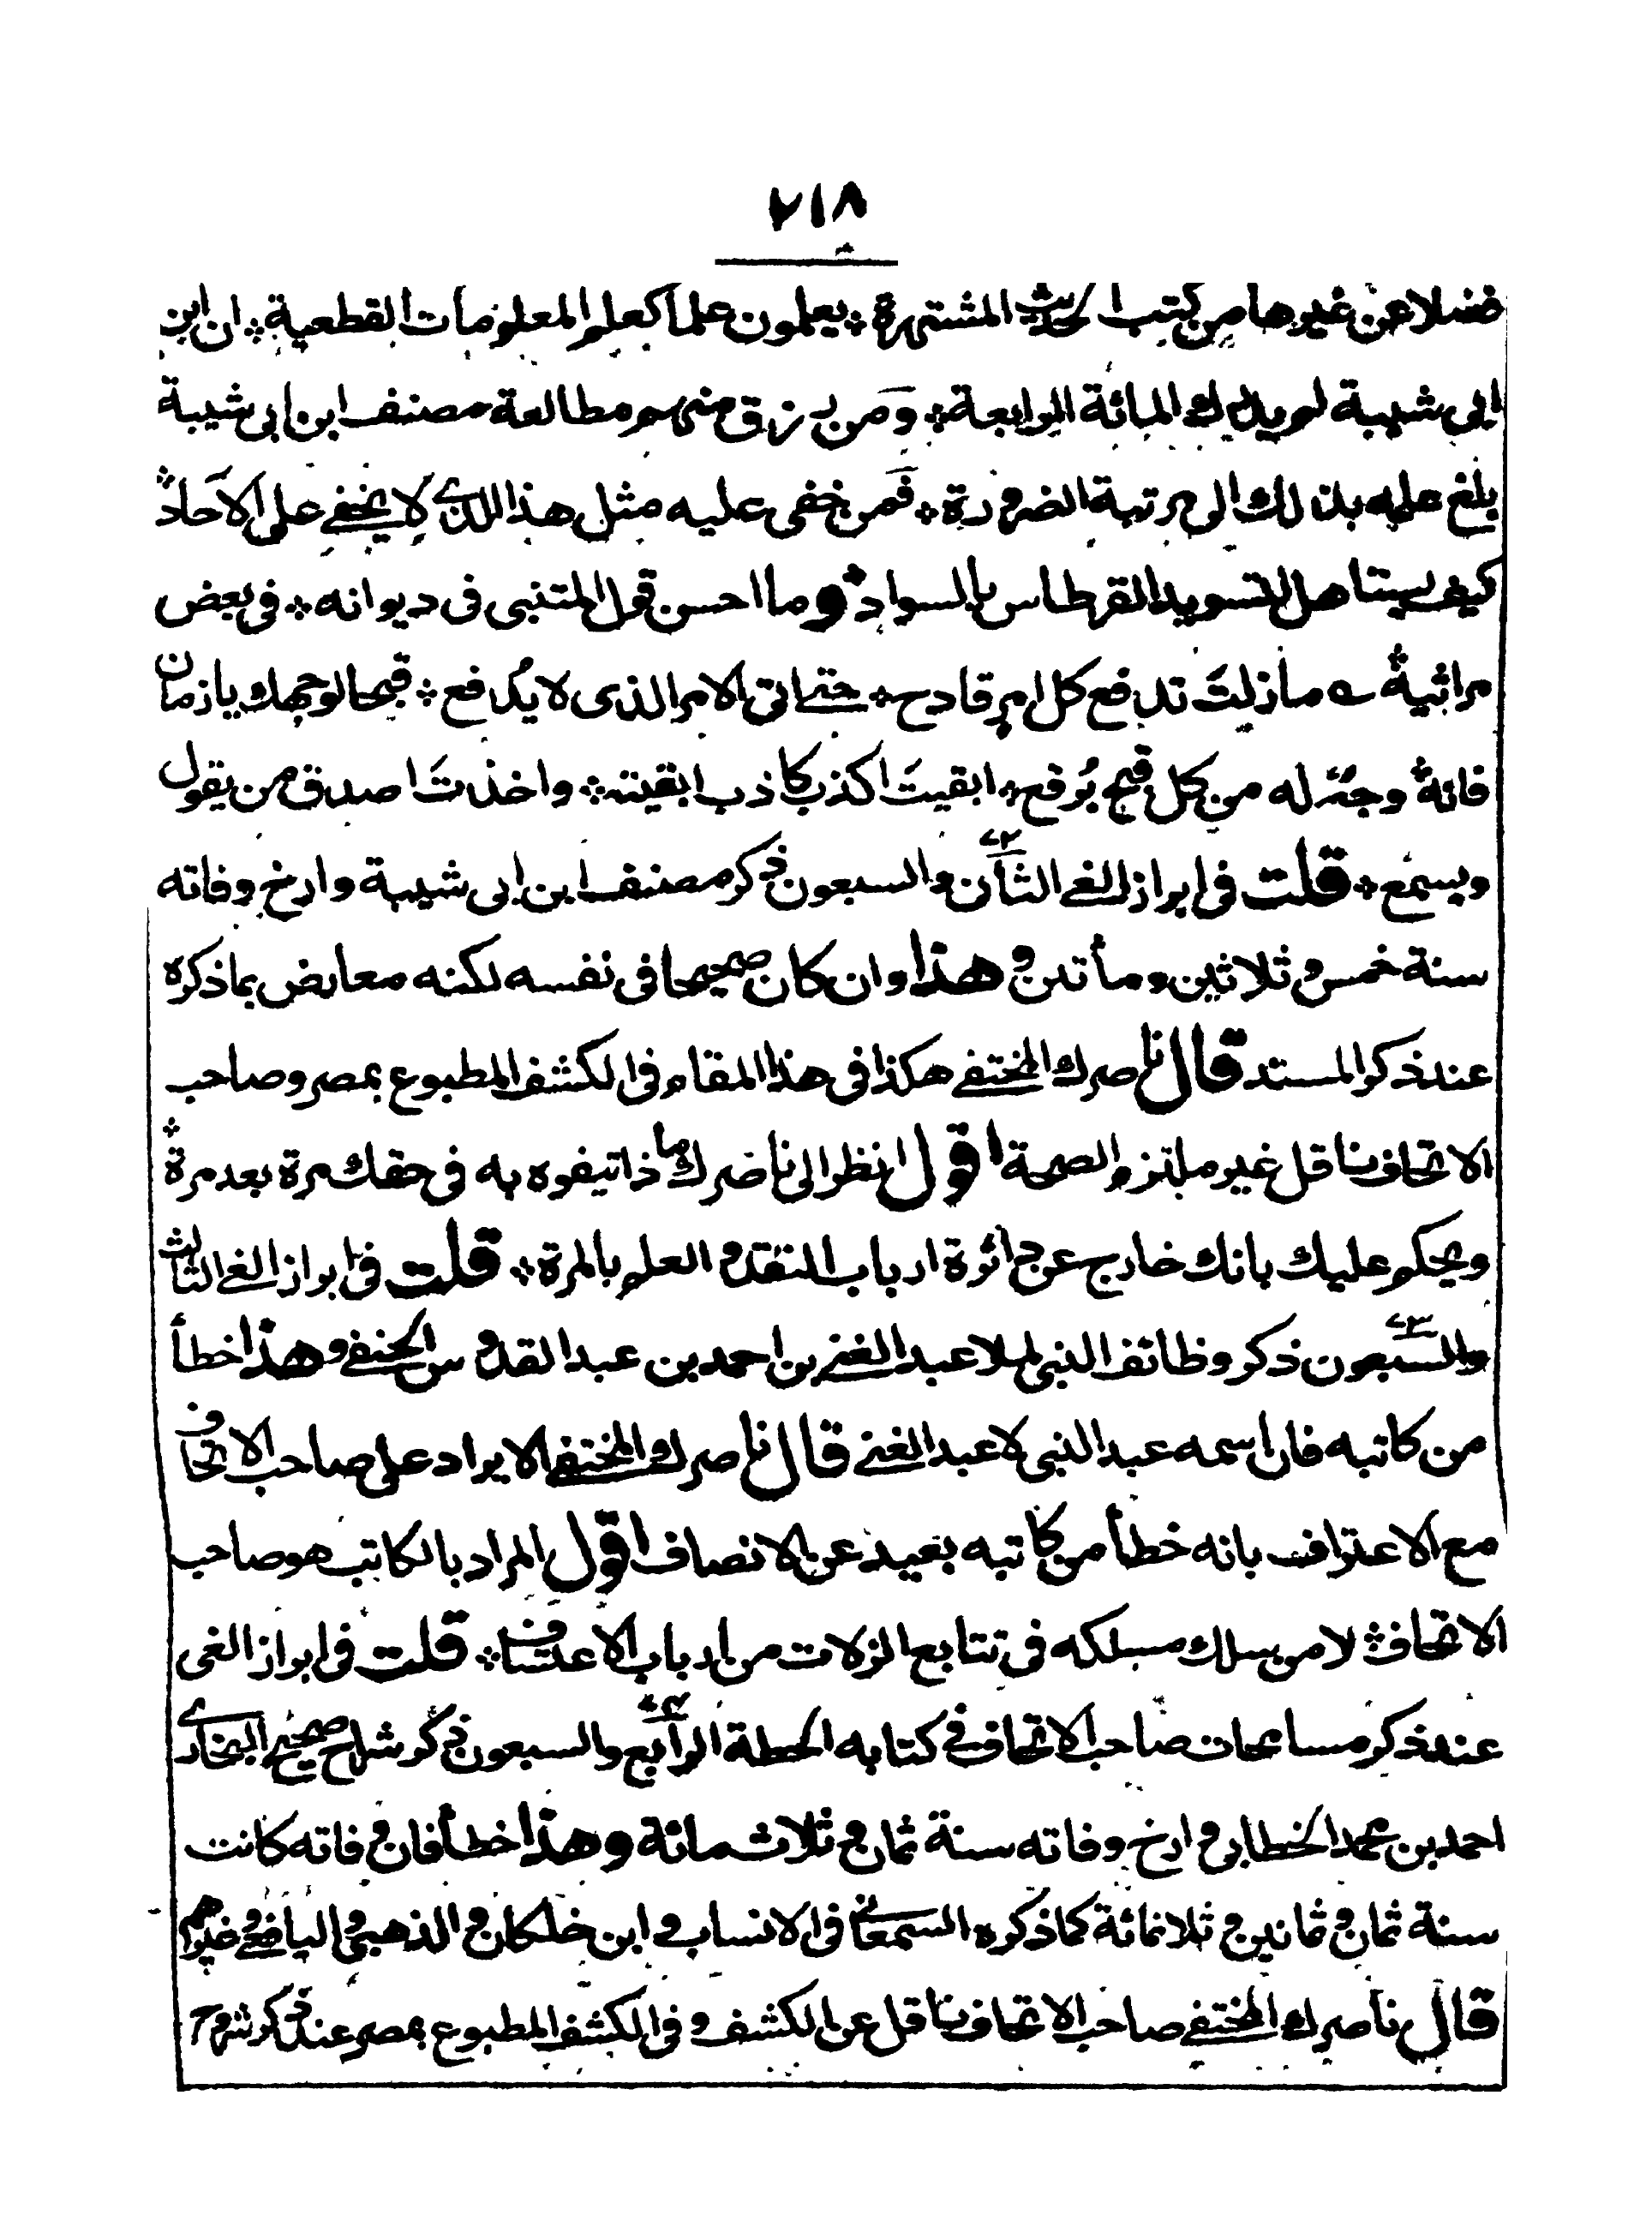 ٢١٨
فضلا عن غيرها من كتب الحديث المشتهرة ؞ يعلمون علما كعلم المعلومات القطعية ؞ ان ابن
ابى شيبة لم يدرك المائة الرابعة ؞ ومن رزق منهم مطالعة مصنف ابن ابى شيبة
بلغ علمه بذلك الى مرتبة الضرورة ؞ فمن خفى عليه مثل هذا الذى لا يخفى على الآحاد ؞
كيف يستاهل لتسويد القرطاس بالسواد ؞ وما احسن قول المتنبى فى ديوانه ؞ فى بعض
مراثيه ؞ ے ما زلتَ تدفع كل امر قادح ؞ حتى اتى الامر الذى لا يُدفع ؞ قبحا لوجهك يا زمان
فانه ؞ وجهٌ له من كل قبح بُرقع ؞ ابقيتَ اكذب كاذب ابقيته ؞ واخذتَ اصدق من يقول
ويسمع ؞ قلت فى ابراز الغى الثانى والسبعون ٧٢ ذكر مصنف ابن ابى شيبة وارخ وفاته
سنة خمس وثلاثين ومأتين وهذا وان كان صحيحا فى نفسه لكنه معارض بما ذكره
عند ذكر المسند قال ناصرك المختفى هكذا فى هذا المقام فى الكشف المطبوع بمصر وصاحب
الاتحاف ناقل غير ملتزم الصحة اقول انظر الى ناصرك ما ذا تيفوه به فى حقك مرة بعد مرة ؞
ويحكم عليك بانك خارج عن دائرة ارباب التقدم العلم بالمرة ؞ قلت فى ابراز الغى الثالث
والسبعون ٧٣ ذكر وظائف النبى لملا عبد الغنى بن احمد بن عبد القدوس الحنفى وهذا خطأ
من كاتبه فان اسمه عبد النبى لا عبد الغنى قال ناصرك المختفى الايراد على صاحب الاتحاف
مع الاعتراف بانه خطأ من كاتبه بعيد عن الانصاف اقول المراد بالكاتب هو صاحب
الاتحاف ؞ لا من سلك مسلكه فى تتابع الزلات من ارباب الاعتساف ؞ قلت فى ابراز الغى
عند ذكر مسامحات صاحب الاتحاف فى كتابه الحطة الرابع والسبعون ٧٤ ذكر شراح صحيح البخارى
احمد بن محمد الخطابى وارخ وفاته سنة ثمان وثلاث مائة وهذا خطأ فان وفاته كانت
سنة ثمان وثمانين وثلاثمائة كما ذكره السمعانى فى الانساب وابن خلكان والذهبى واليافعى وغيرهم
قال ناصرك المختفى صاحب الاتحاف ناقل عن الكشف وفى الكشف المطبوع بمصر عند ذكر شروح